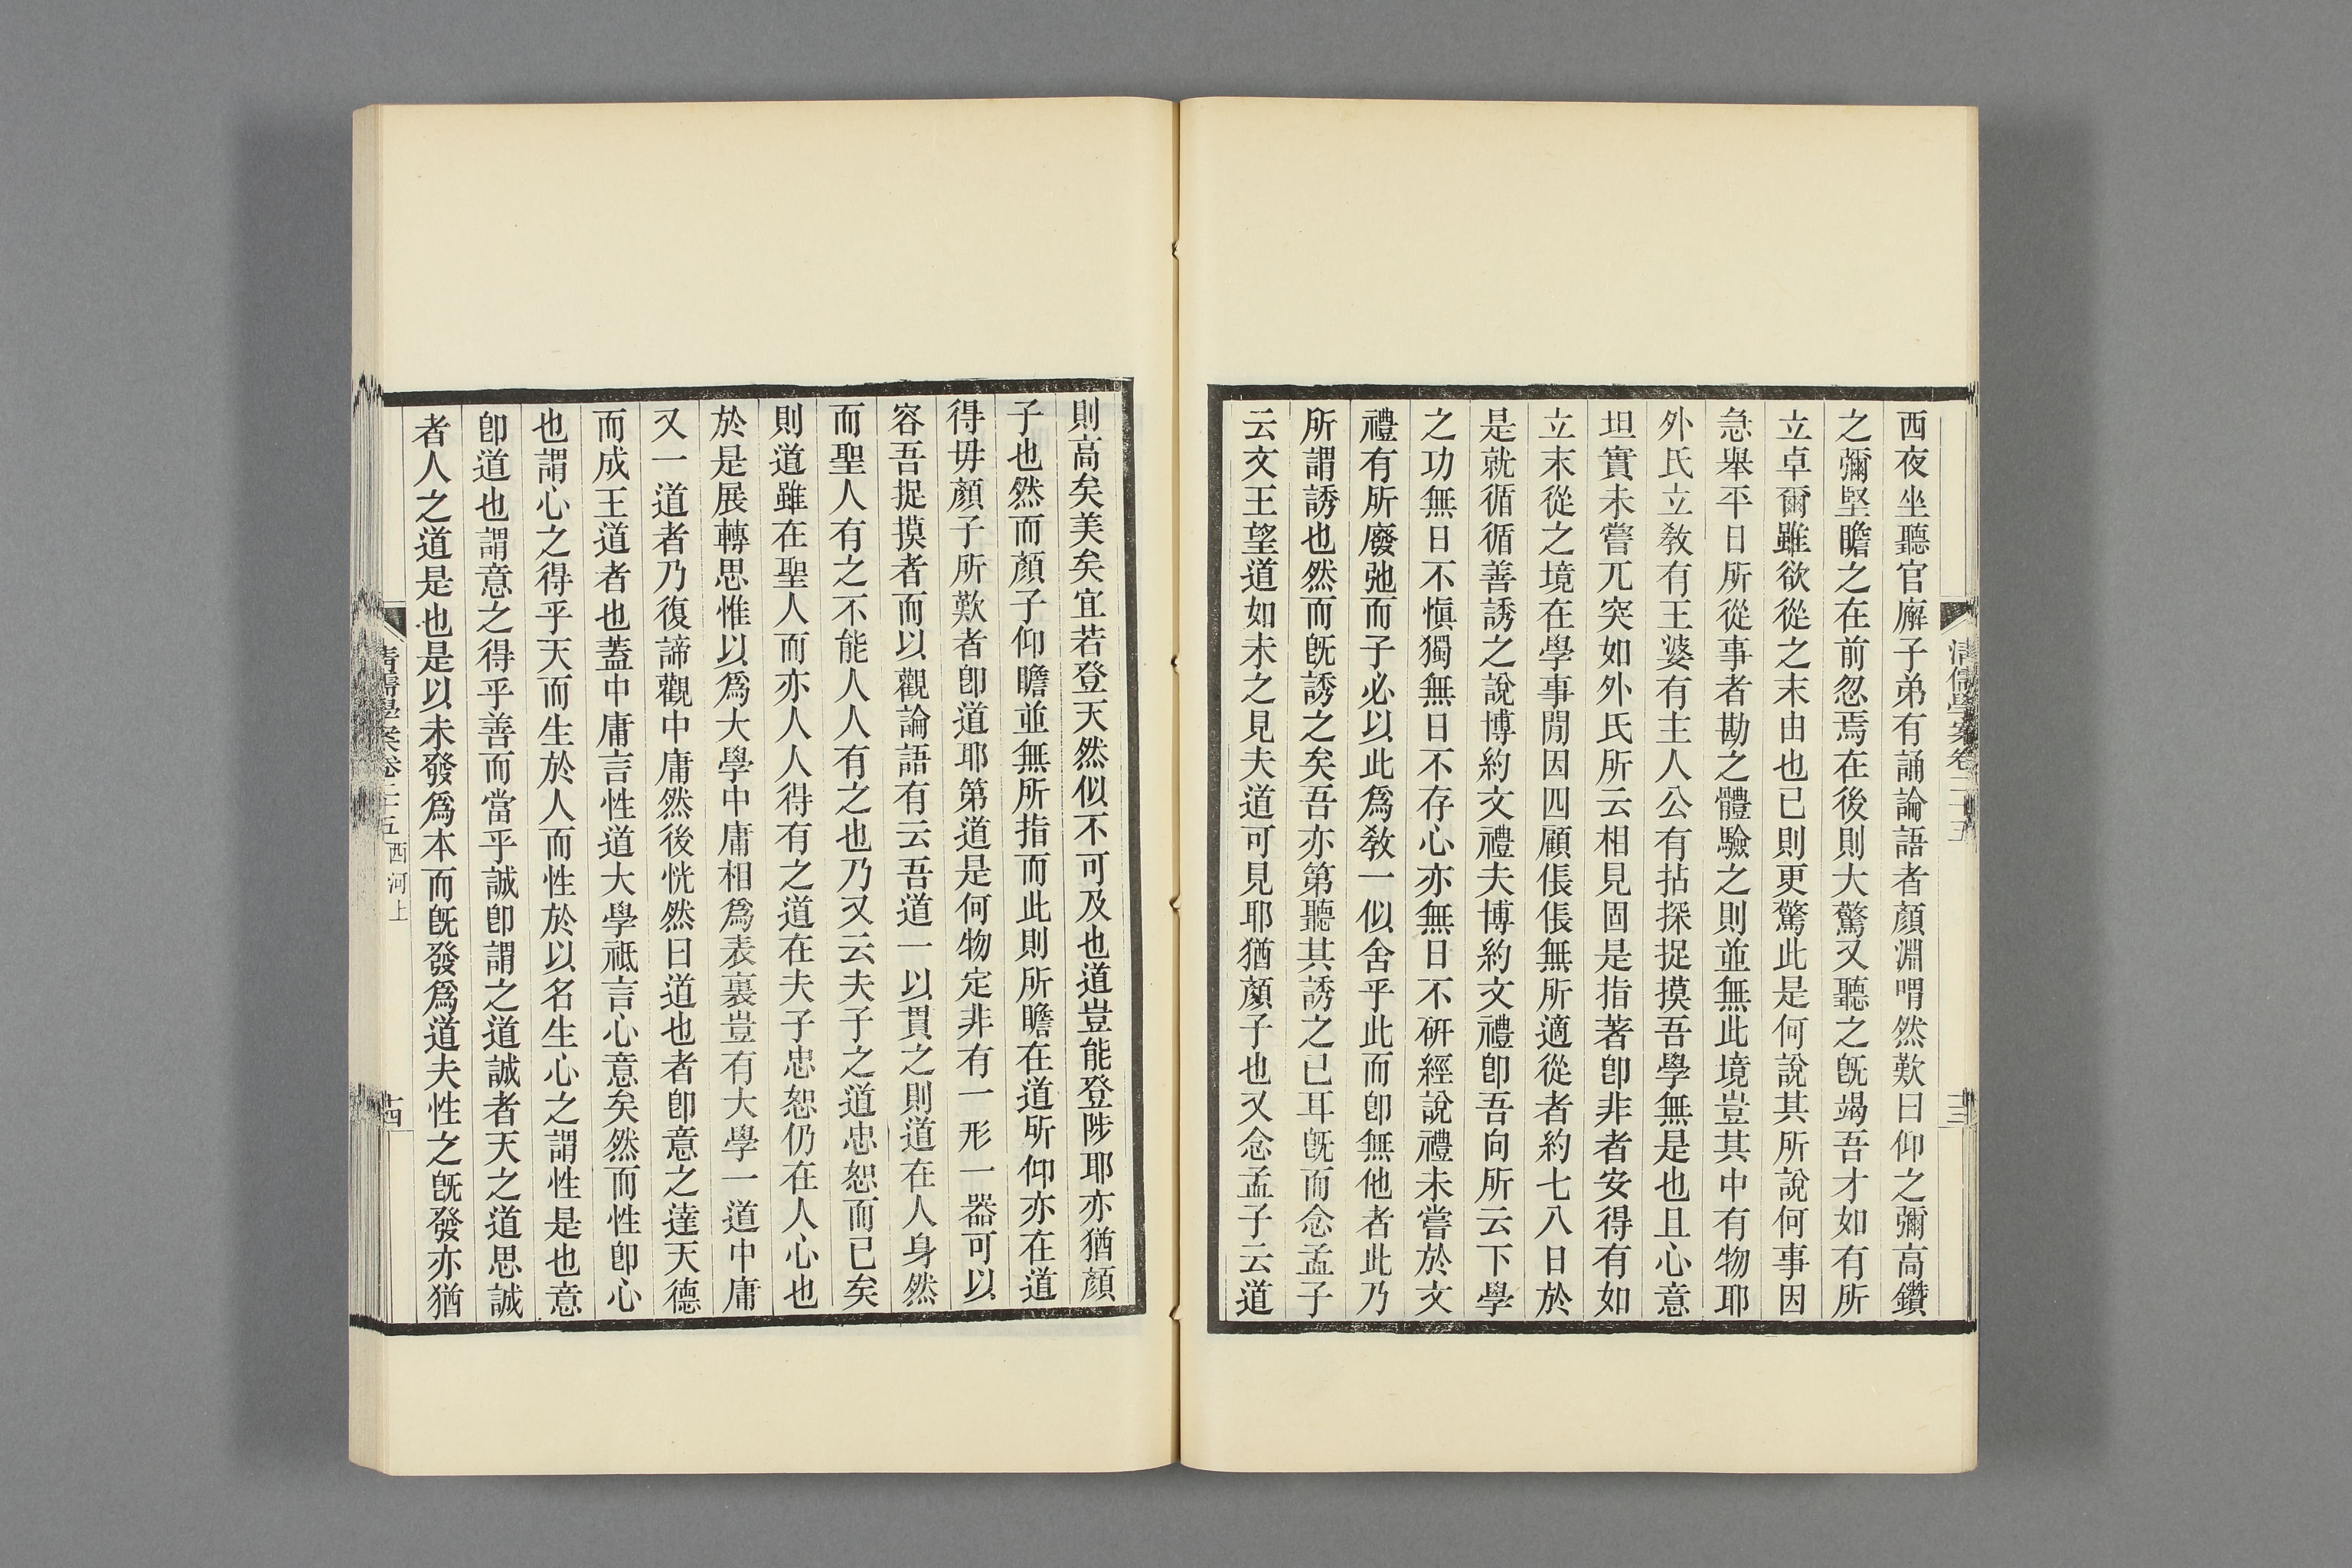 清儒學案卷二十五
十三
西夜坐聽官廨子弟有誦論語者顏淵喟然歎曰仰之彌高鑽
之彌堅瞻之在前忽焉在後則大驚又聽之旣竭吾才如有所
立卓爾雖欲從之末由也已則更驚此是何說其所說何事因
急舉平日所從事者勘之體驗之則並無此境豈其中有物耶
外氏立敎有王婆有主人公有拈探捉摸吾學無是也且心意
坦實未嘗兀突如外氏所云相見固是指著卽非者安得有如
立末從之境在學事閒因四顧倀倀無所適從者約七八日於
是就循循善誘之說博約文禮夫博約文禮卽吾向所云下學
之功無日不愼獨無日不存心亦無日不硏經說禮未嘗於文
禮有所廢弛而子必以此爲敎一似舍乎此而卽無他者此乃
所謂誘也然而旣誘之矣吾亦第聽其誘之已耳旣而念孟子
云文王望道如未之見夫道可見耶猶顏子也又念孟子云道
則高矣美矣宜若登天然似不可及也道豈能登陟耶亦猶顏
子也然而顏子仰瞻並無所指而此則所瞻在道所仰亦在道
得毋顏子所歎者卽道耶第道是何物定非有一形一器可以
容吾捉摸者而以觀論語有云吾道一以貫之則道在人身然
而聖人有之不能人人有之也乃又云夫子之道忠恕而已矣
則道雖在聖人而亦人人得有之道在夫子忠恕仍在人心也
於是展轉思惟以爲大學中庸相爲表裏豈有大學一道中庸
又一道者乃復諦觀中庸然後恍然曰道也者卽意之達天德
而成王道者也蓋中庸言性道大學祇言心意矣然而性卽心
也謂心之得乎天而生於人而性於以名生心之謂性是也意
卽道也謂意之得乎善而當乎誠卽謂之道誠者天之道思誠
者人之道是也是以未發爲本而旣發爲道夫性之旣發亦猶
清儒學案卷二十五 西河上
十四